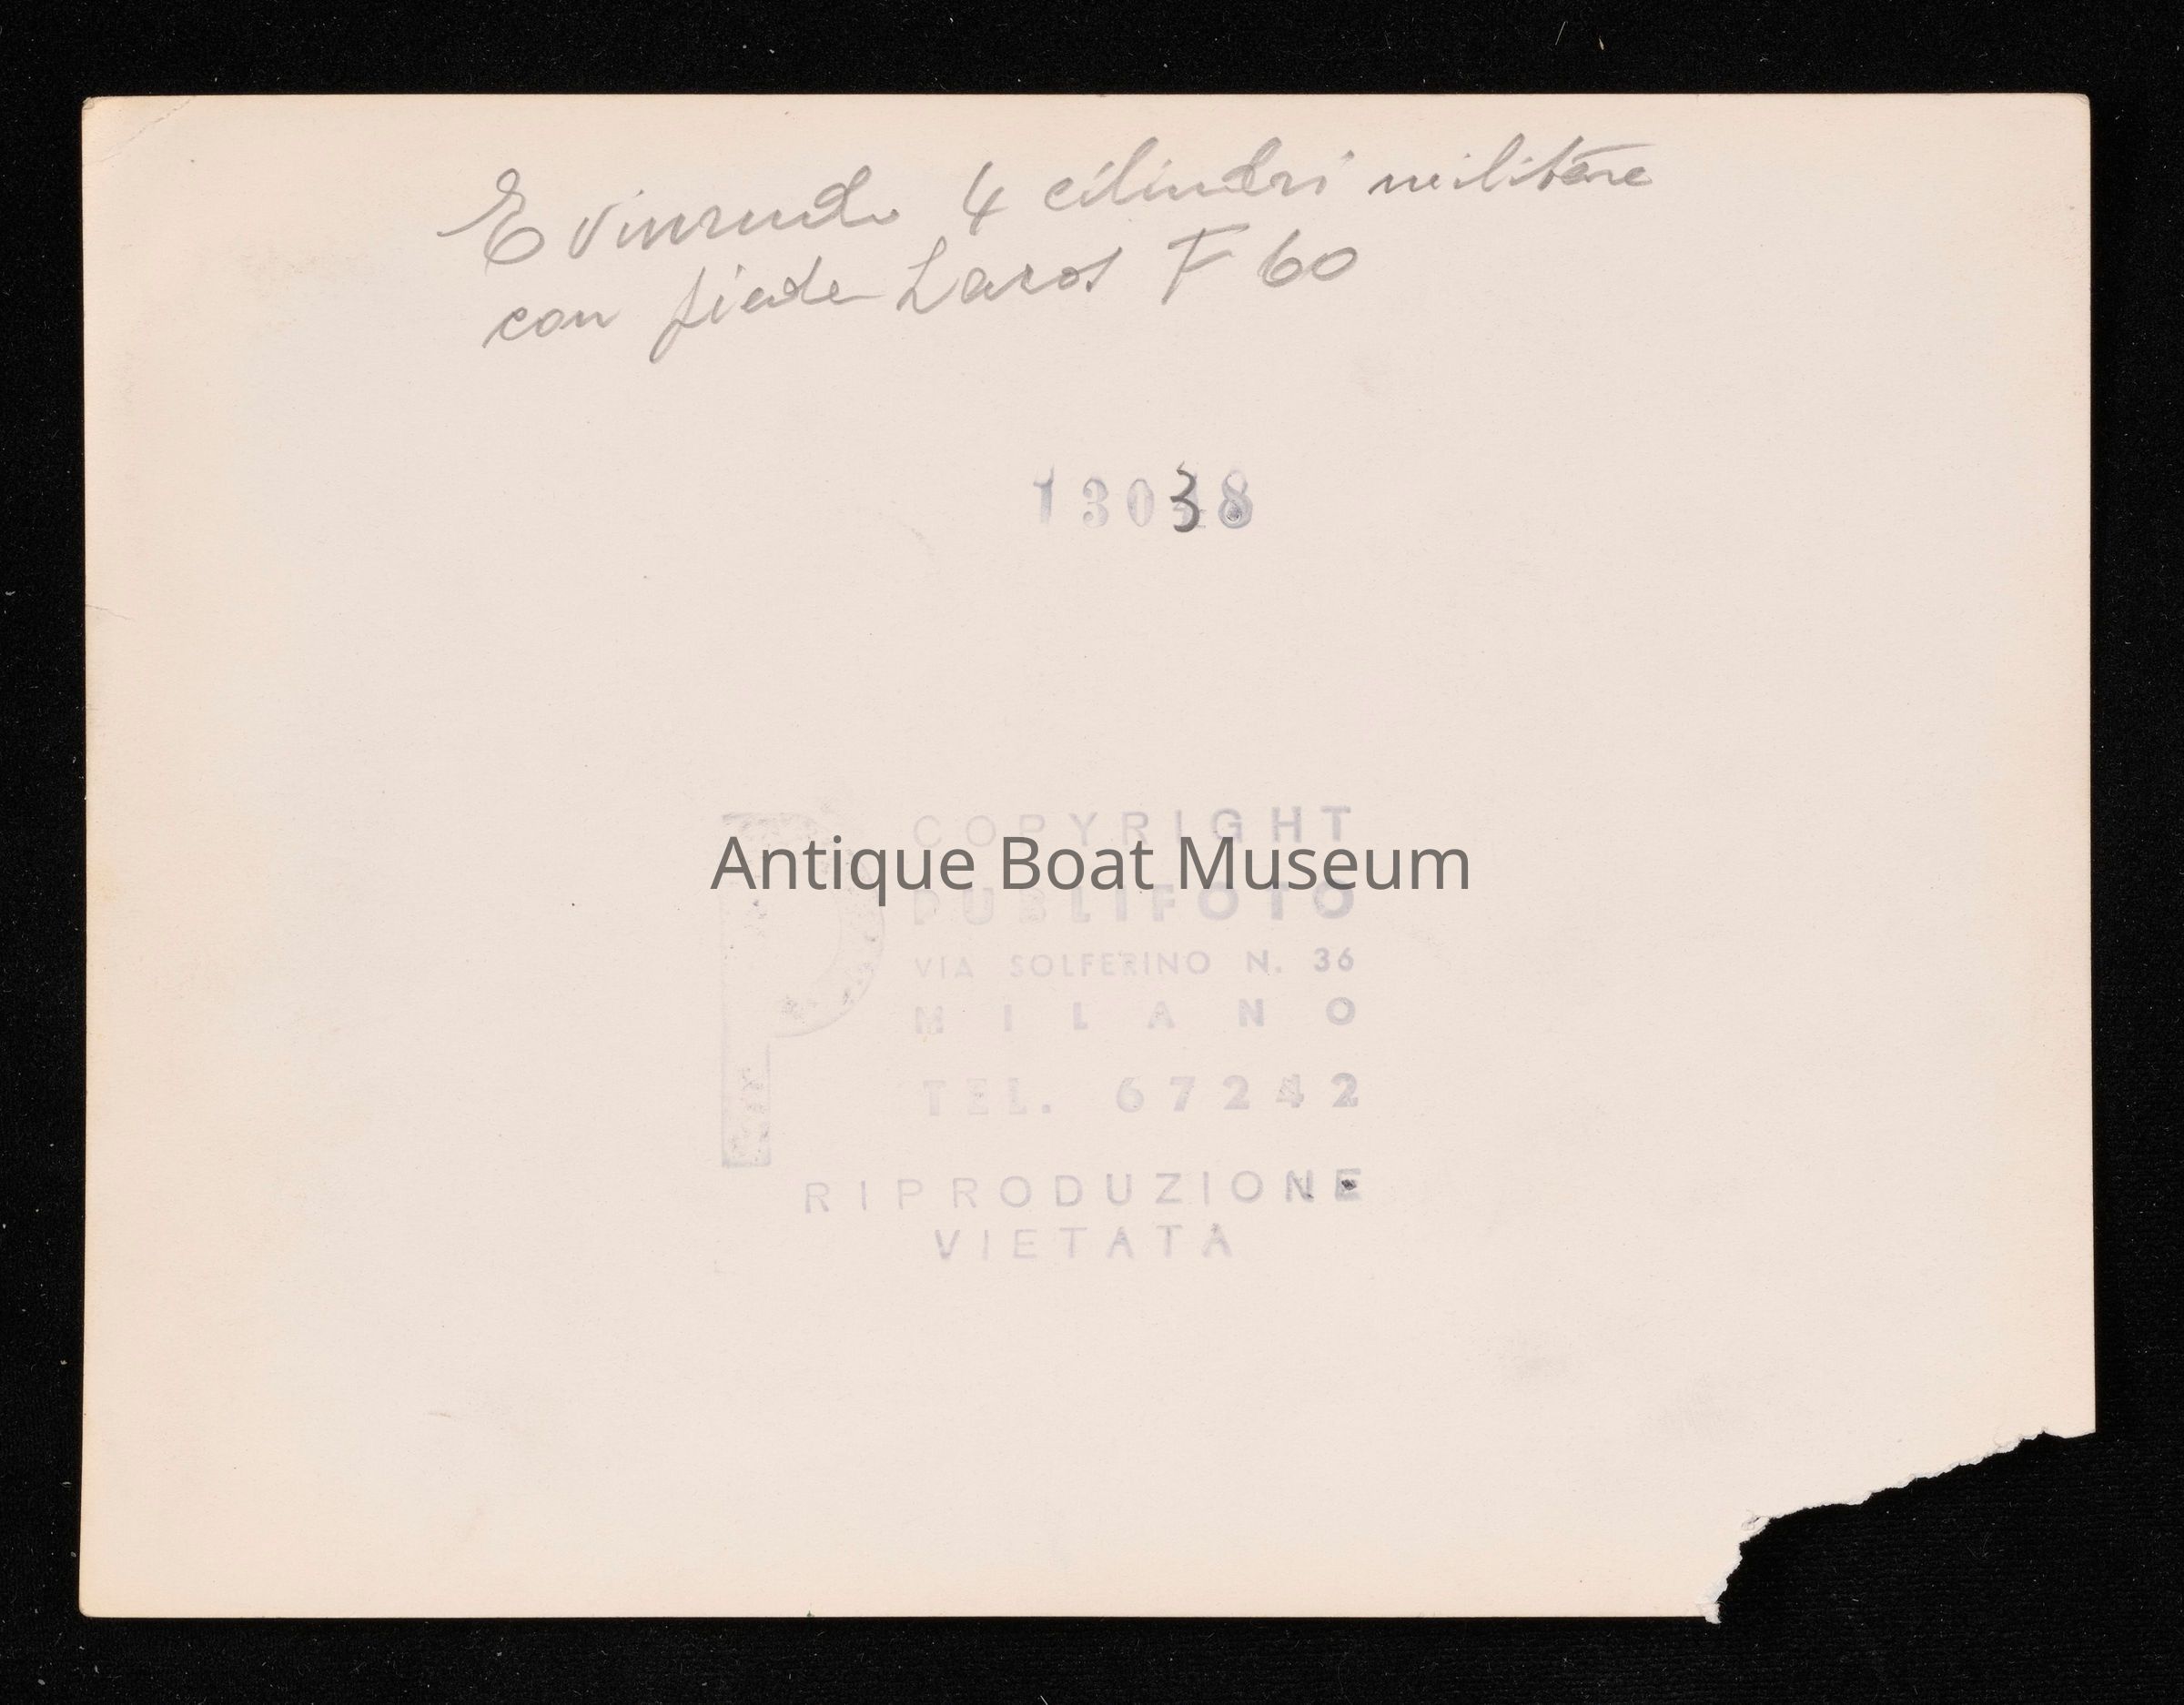 Evinrude 4 cilindri militare
con piede Laros F 60
13038
COPYRIGHT
Antique Boat Museum
PUBLIFOTO
VIA SOLFERINO N. 36
MILANO
TEL. 67242
RIPRODUZIONE
VIETATA